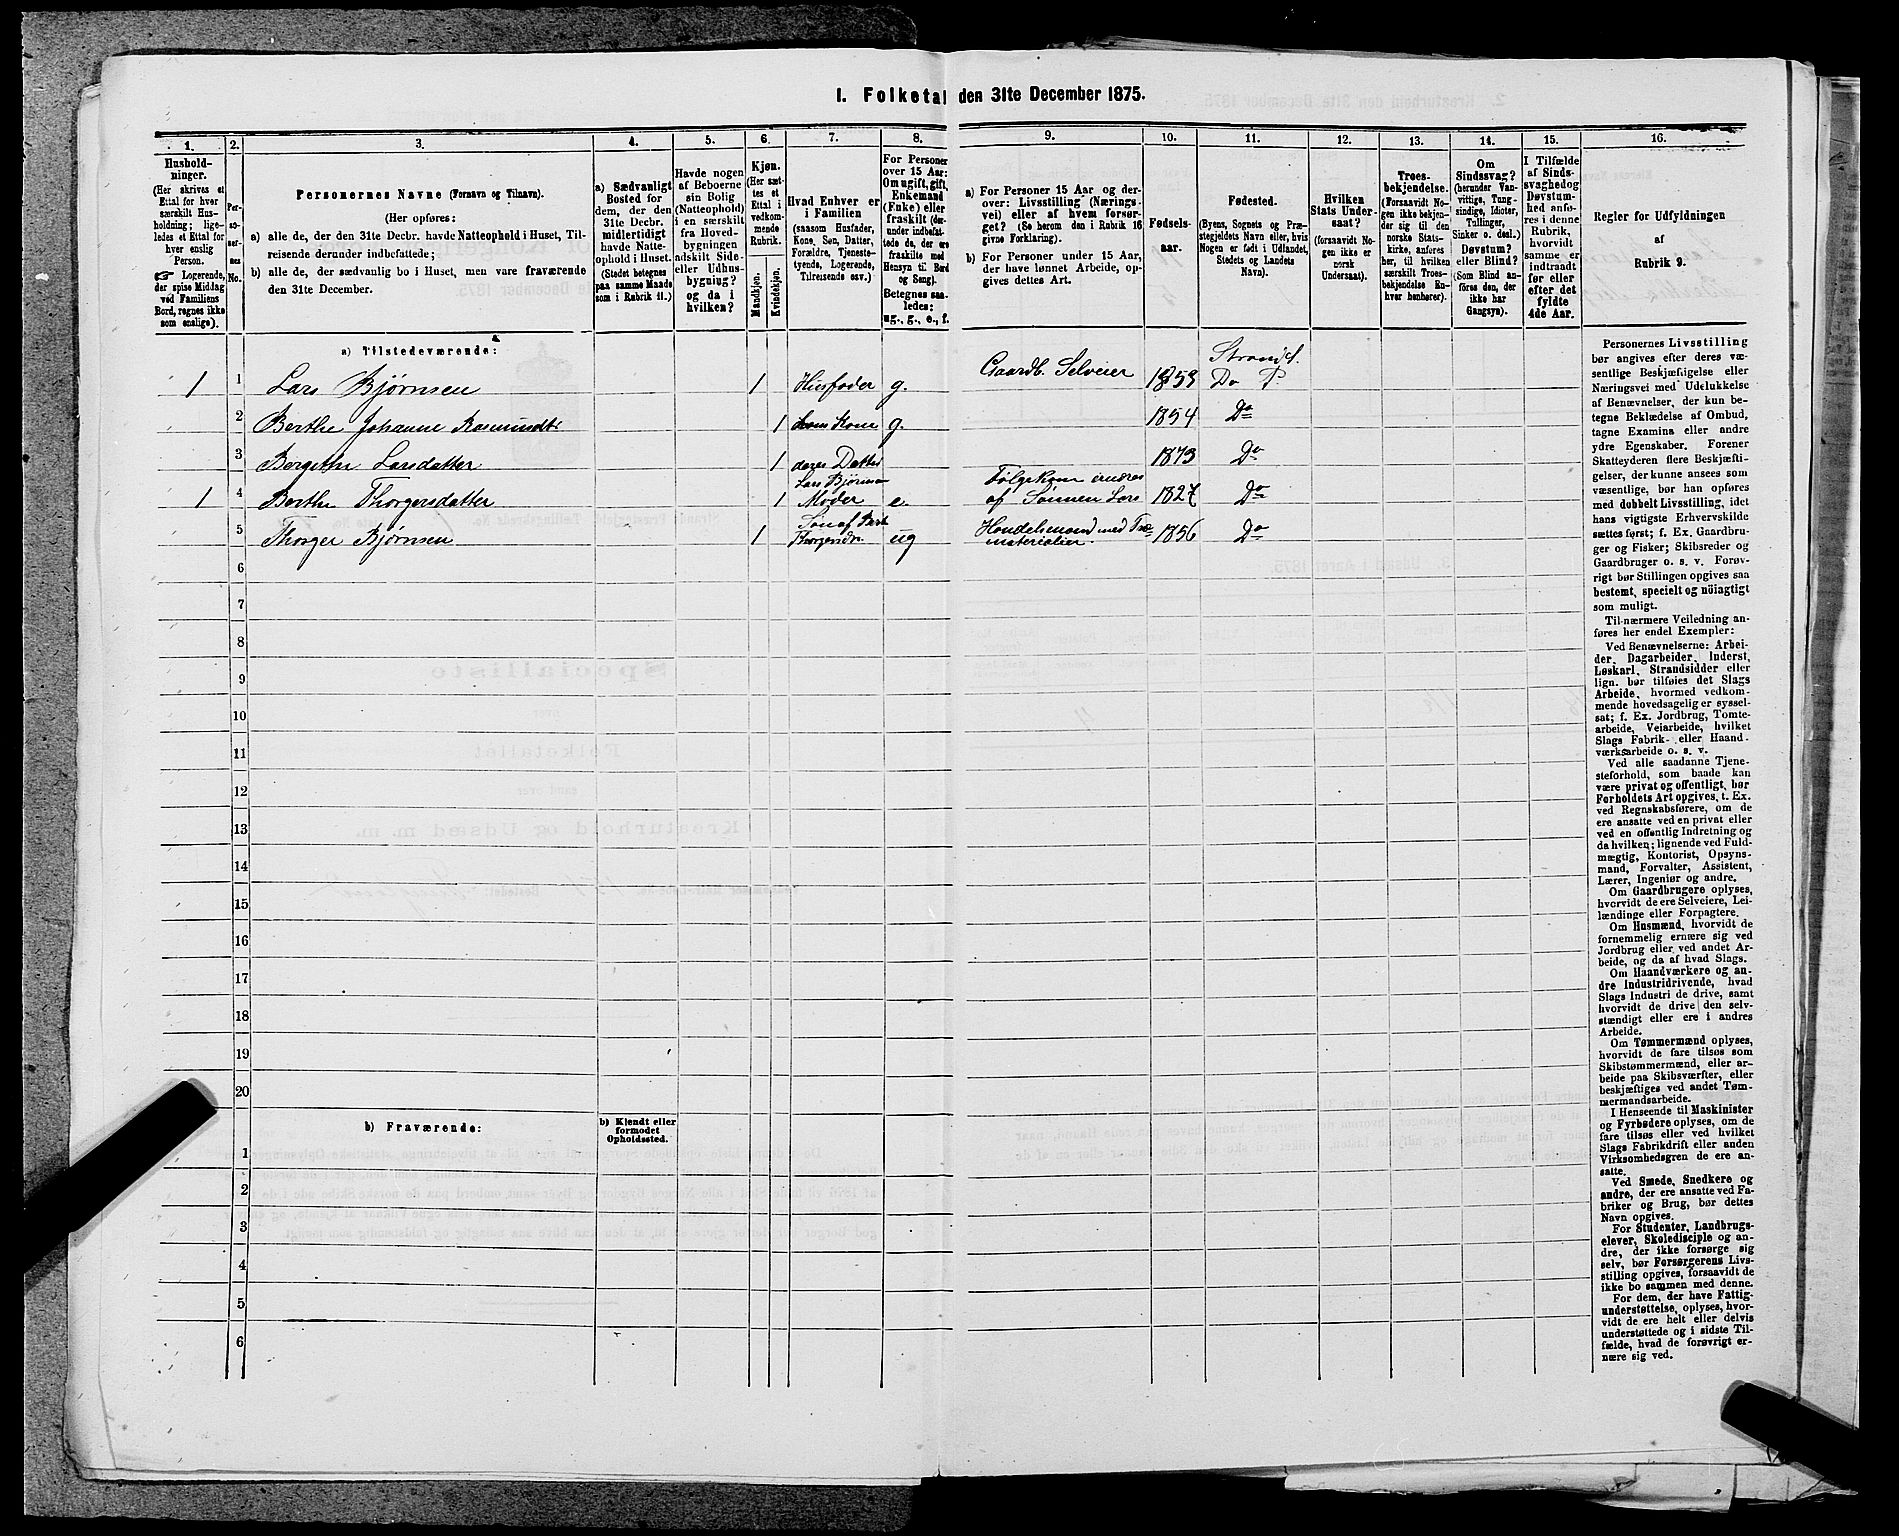 I. Folketal den 31te December 1875.
1.
Hushold-
ninger.
(Her skrives et
Ettal for hver
særskilt Hus-
holdning; lige-
ledes et Ettal for
hver enslig
Person.
☞ Logerende,
der spise Middag
ved Familiens
Bord, regnes ikke
som enslige).
2.
Per-
so-
ner-
nes
No.
3.
Personernes Navne (Fornavn og Tilnavn).
(Her opføres:
a) alle de, der den 31te Decbr. havde Natteophold i Huset, Til-
reisende derunder indbefattede;
b) alle de, der sædvanlig bo i Huset, men vare fraværende
den 31te December.)
4.
a) Sædvanligt
Bosted for
dem, der den
31te Decbr.
midlertidigt
havde Natte-
ophold i Huset.
(Stedet betegnes
paa samme Maade
som i Rubrik 11.)
5.
Havde nogen
af Beboerne
sin Bolig
(Natteophold)
i en særskilt
fra Hoved-
bygningen
adskilt Side-
eller Udhus-
bygning?
og da i
hvilken?
6.
Kjøn.
(Her sæt-
tes et
Ettal i
vedkom-
mende
Rubrik.
Mandkjøn.
Kvindekjøn.
7.
Hvad Enhver er
i Familien
(saasom Husfader,
Kone, Søn, Datter,
Forældre, Tjeneste-
tyende, Logerende,
Tilreisende osv.)
8.
For Personer
over 15 Aar:
Om ugift, gift,
Enkemand
(Enke) eller
fraskilt (der-
under indbefat-
tede de, der ere
fraskilte med
Hensyn til Bord
og Seng).
Betegnes saa-
ledes:
ug., g., e., f.
9.
a) For Personer 15 Aar og der-
over: Livsstilling (Nærings-
vei) eller af hvem forsør-
get? (Se herom den i Rubrik 16
givne Forklaring).
b) For Personer under 15 Aar,
der have lønnet Arbeide, op-
gives dettes Art.
10.
Fødsels-
aar.
11.
Fødested.
(Byens, Sognets og Præ-
stegjeldets Navn eller, hvis
Nogen er født i Udlandet,
Stedets og Landets
Navn).
12.
Hvilken
Stats Under-
saat?
(forsaavidt No-
gen ikke er
norsk
Undersaat).
13.
Troes-
bekjendelse.
(Forsaavidt No-
gen ikke bekjen-
der sig til den
norske Stats-
kirke, anføres
her, til hvilken
særskilt Troes-
bekjendelse En-
hver henhører).
14.
Om
Sindssvag?
(herunder Van-
vittige, Tung-
sindige, Idioter,
Tullinger,
Sinker o. desl.)
Døvstum?
eller Blind?
(Som Blind an-
føres den, der
ikke har
Gangsyn).
15.
I Tilfælde
af Sinds-
svaghed og
Døvstum-
hed anfø-
res i denne
Rubrik,
hvorvidt
samme er
indtraadt
før eller
efter det
fyldte
4de Aar.
16.
Regler for Udfyldningen
af
Rubrik 9.
a) Tilstedeværende:
1 1 Lars Bjørnsen 1 Husfader g. Gaardb. Selveier 1853 Strand S. Do P
2 Berthe Johanne Rasmundt. 1 hans Kone g. 1854 Do
3 Bergethe Larsdatter 1 deres Datter 1873 Do
1 4 Berthe Thorgersdatter 1 Lars Bjørnsen Moder e. Følgekone ernæres
af Sønnen Lars 1827 Do
5 Thorger Bjørnsen 1 Søn af Bert
Thorgersdr. ug Handelsmand med Træ-
materialier. 1856 Do
6
7
8
9
10
11
12
13
14
15
16
17
18
19
20
b) Fraværende:
b) Kjendt eller
formodet
Opholdssted.
1
2
3
4
5
6
Personernes Livsstilling
bør angives efter deres væ-
sentlige Beskjæftigelse eller
Næringsvei med Udelukkelse
af Benævnelser, der kun be-
tegne Beklædelse af Ombud,
tagne Examina eller andre
ydre Egenskaber. Forener
Skatteyderen flere Beskjæfti-
gelser, der kunne ansees som
væsentlige, bør han opføres
med dobbelt Livsstilling, idet
hans vigtigste Erhvervskilde
sættes først; f. Ex. Gaardbru-
ger og Fisker; Skibsreder og
Gaardbruger o. s. v. Forøv-
rigt bør Stillingen opgives saa
bestemt, specielt og nøiagtigt
som muligt.
Til nærmere Veiledning an-
føres her endel Exempler:
Ved Benævnelserne: Arbei-
der, Dagarbeider, Inderst,
Løskarl, Strandsidder eller
lign. bør tilføies det Slags
Arbeide, hvormed vedkom-
mende hovedsagelig er syssel-
sat; f. Ex. Jordbrug, Tomte-
arbeide, Veiarbeide, hvilket
Slags Fabrik- eller Haand-
værksarbeide o. s. v.
Ved alle saadanne Tjene-
steforhold, som baade kan
være privat og offentligt, bør
Forholdets Art opgives, t. Ex.
ved Regnskabsførere, om de
ere ansatte ved en privat eller
ved en offentlig Indretning og
da hvilken; lignende ved Fuld-
mægtig, Kontorist, Opsyns-
mand, Forvalter, Assistent,
Lærer, Ingeniør og andre.
Om Gaardbrugere oplyses,
hvorvidt de ere Selveiere, Lei-
lændinge eller Forpagtere.
Om Husmænd, hvorvidt de
fornemmelig ernære sig ved
Jordbrug eller ved andet Ar-
beide, og da af hvad Slags.
Om Haandværkere og an-
dre Industridrivende, hvad
Slags Industri de drive, samt
hvorvidt de drive den selv-
stændigt eller ere i andres
Arbeide.
Om Tømmermænd oplyses,
hvorvidt de fare tilsøs som
Skibstømmermænd, eller ar-
beide paa Skibsværfter, eller
beskjæftiges ved andet Tøm-
mermandsarbeide.
I Henseende til Maskinister
og Fyrbødere oplyses, om de
fare tilsøs eller ved hvilket
Slags Fabrikdrift eller anden
Virksomhedsgren de ere an-
satte.
Ved Smede, Snedkere og
andre, der ere ansatte ved Fa-
briker og Brug, bør dettes
Navn opgives.
For Studenter, Landbrugs-
elever, Skoledisciple og an-
dre, der ikke forsørge sig
selv, bør Forsørgerens Livs-
stilling opgives, forsaavidt de
ikke bo sammen med denne.
For dem, der have Fattig-
understøttelse, oplyses, hvor-
vidt de ere helt eller delvis
understøttede og i sidste Til-
fælde, hvad de forøvrigt er-
nære sig ved.